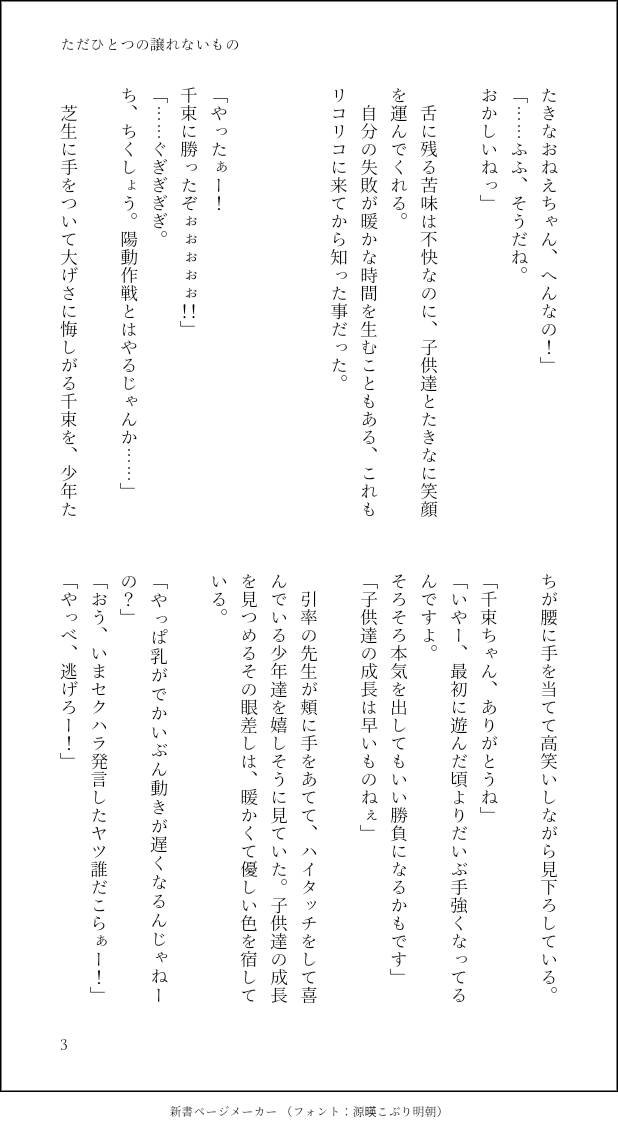 ただひとつの譲れないもの
たきなおねえちゃん、へんなの！」
「……ふふ、そうだね。
おかしいねっ」
舌に残る苦味は不快なのに、子供達とたきなに笑顔
を運んでくれる。
自分の失敗が暖かな時間を生むこともある、これも
リコリコに来てから知った事だった。
「やったぁー！
千束に勝ったぞぉぉぉぉぉ!!」
「……ぐぎぎぎぎ。
ち、ちくしょう。陽動作戦とはやるじゃんか……」
芝生に手をついて大げさに悔しがる千束を、少年た
ちが腰に手を当てて高笑いしながら見下ろしている。
「千束ちゃん、ありがとうね」
「いやー、最初に遊んだ頃よりだいぶ手強くなってる
んですよ。
そろそろ本気を出してもいい勝負になるかもです」
「子供達の成長は早いものねぇ」
引率の先生が頬に手をあてて、ハイタッチをして喜
んでいる少年達を嬉しそうに見ていた。子供達の成長
を見つめるその眼差しは、暖かくて優しい色を宿して
いる。
「やっぱ乳がでかいぶん動きが遅くなるんじゃねー
の？」
「おう、いまセクハラ発言したヤツ誰だこらぁー！」
「やっべ、逃げろー！」
3
新書ページメーカー（フォント：源暎こぶり明朝）